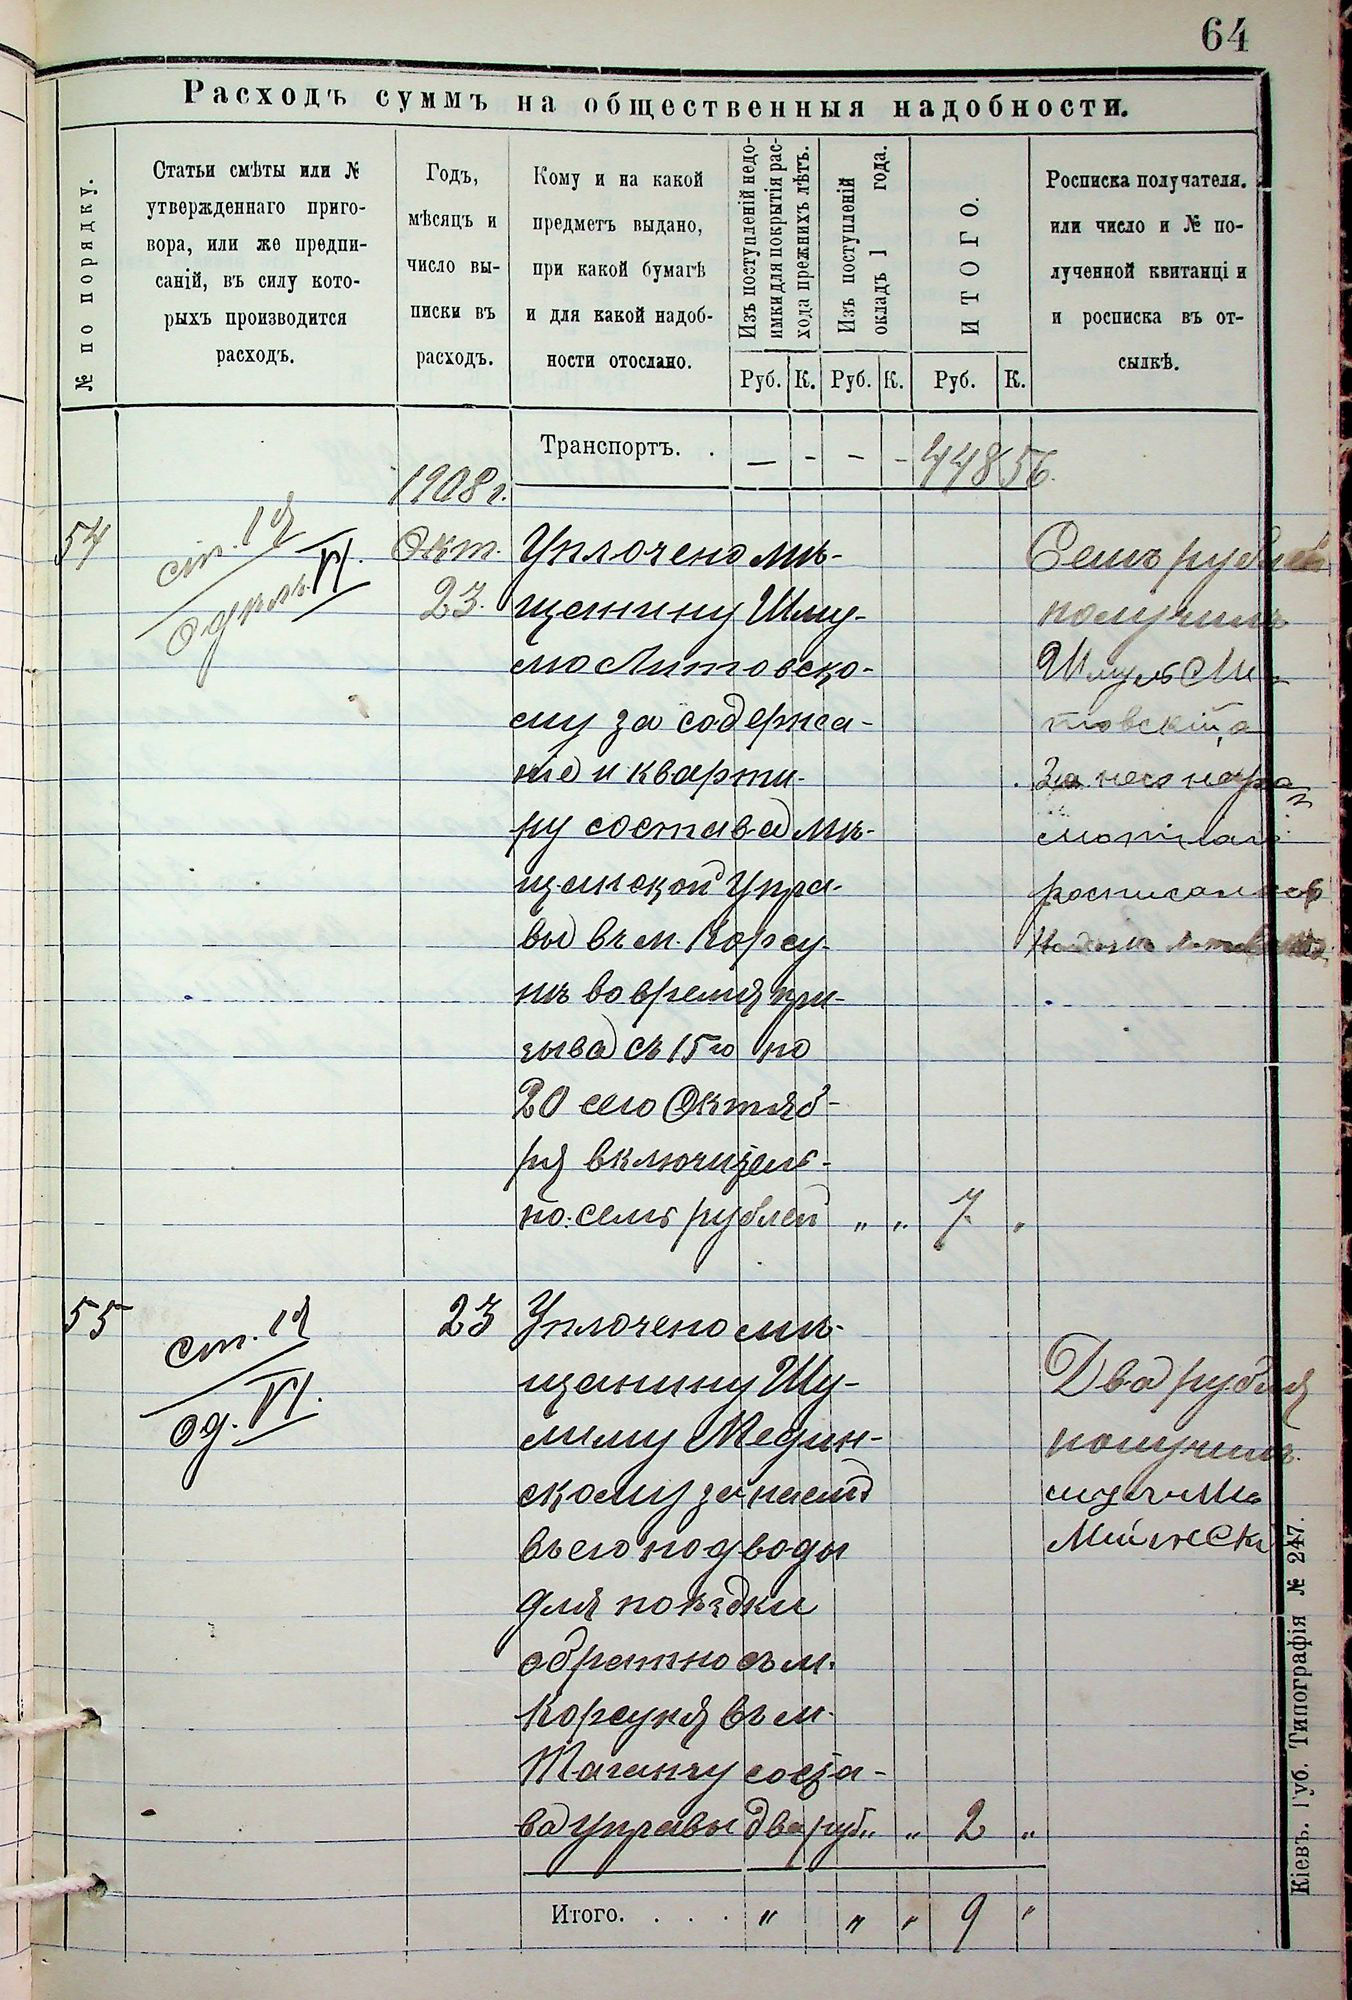 64
Расходъ суммъ на общественныя надобности.
№ по порядку.
Статьи смѣты или №
утвержденнаго приго-
вора, или же предпи-
саній, въ силу кото-
рыхъ производится
расходъ.
Годъ,
мѣсяцъ и
число вы-
писки въ
расходъ.
Кому и на какой
предметъ выдано,
при какой бумагѣ
и для какой надоб-
ности отослано.
Изъ поступленій недо-
имки для покрытія рас-
хода прежнихъ лѣтъ.
Изъ поступленій
окладъ 1 года.
ИТОГО.
Росписка получателя.
или число и № по-
лученной квитанці и
и росписка въ от-
сылкѣ.
Руб. К. Руб. К. Руб. К.
Транспортъ. . — - - - 448 56.
1908 г.
54
ст. 19
VI.
Окт.
23.
Уплочено мѣ-
щанину Шму-
лю Литовско-
му за содержа-
ніе и кварти-
ру состава мѣ-
щанской Упра-
вы въ м. Корсу-
нѣ во время при-
зыва съ 15 го по
20 сего Октяб-
ря включитель-
но: семь рублей „ „ 7. „
Семь рублей
получилъ
Шмуль Ли-
товскій, а
за него негра-
мотнаго
росписался
55
ст. 19
од. VI.
23
Уплочено мѣ-
щанину Шу-
лиму Медин-
скому за наемъ
въ его подводы
для поѣздки
обратно съ м.
Корсуня въ м.
Таганчу соста-
ва управы два руб. „ „ 2 „
Два рубля
получилъ
Итого. . . . „ „ „ 9 „
Кіевъ. Губ. Типографія № 247.